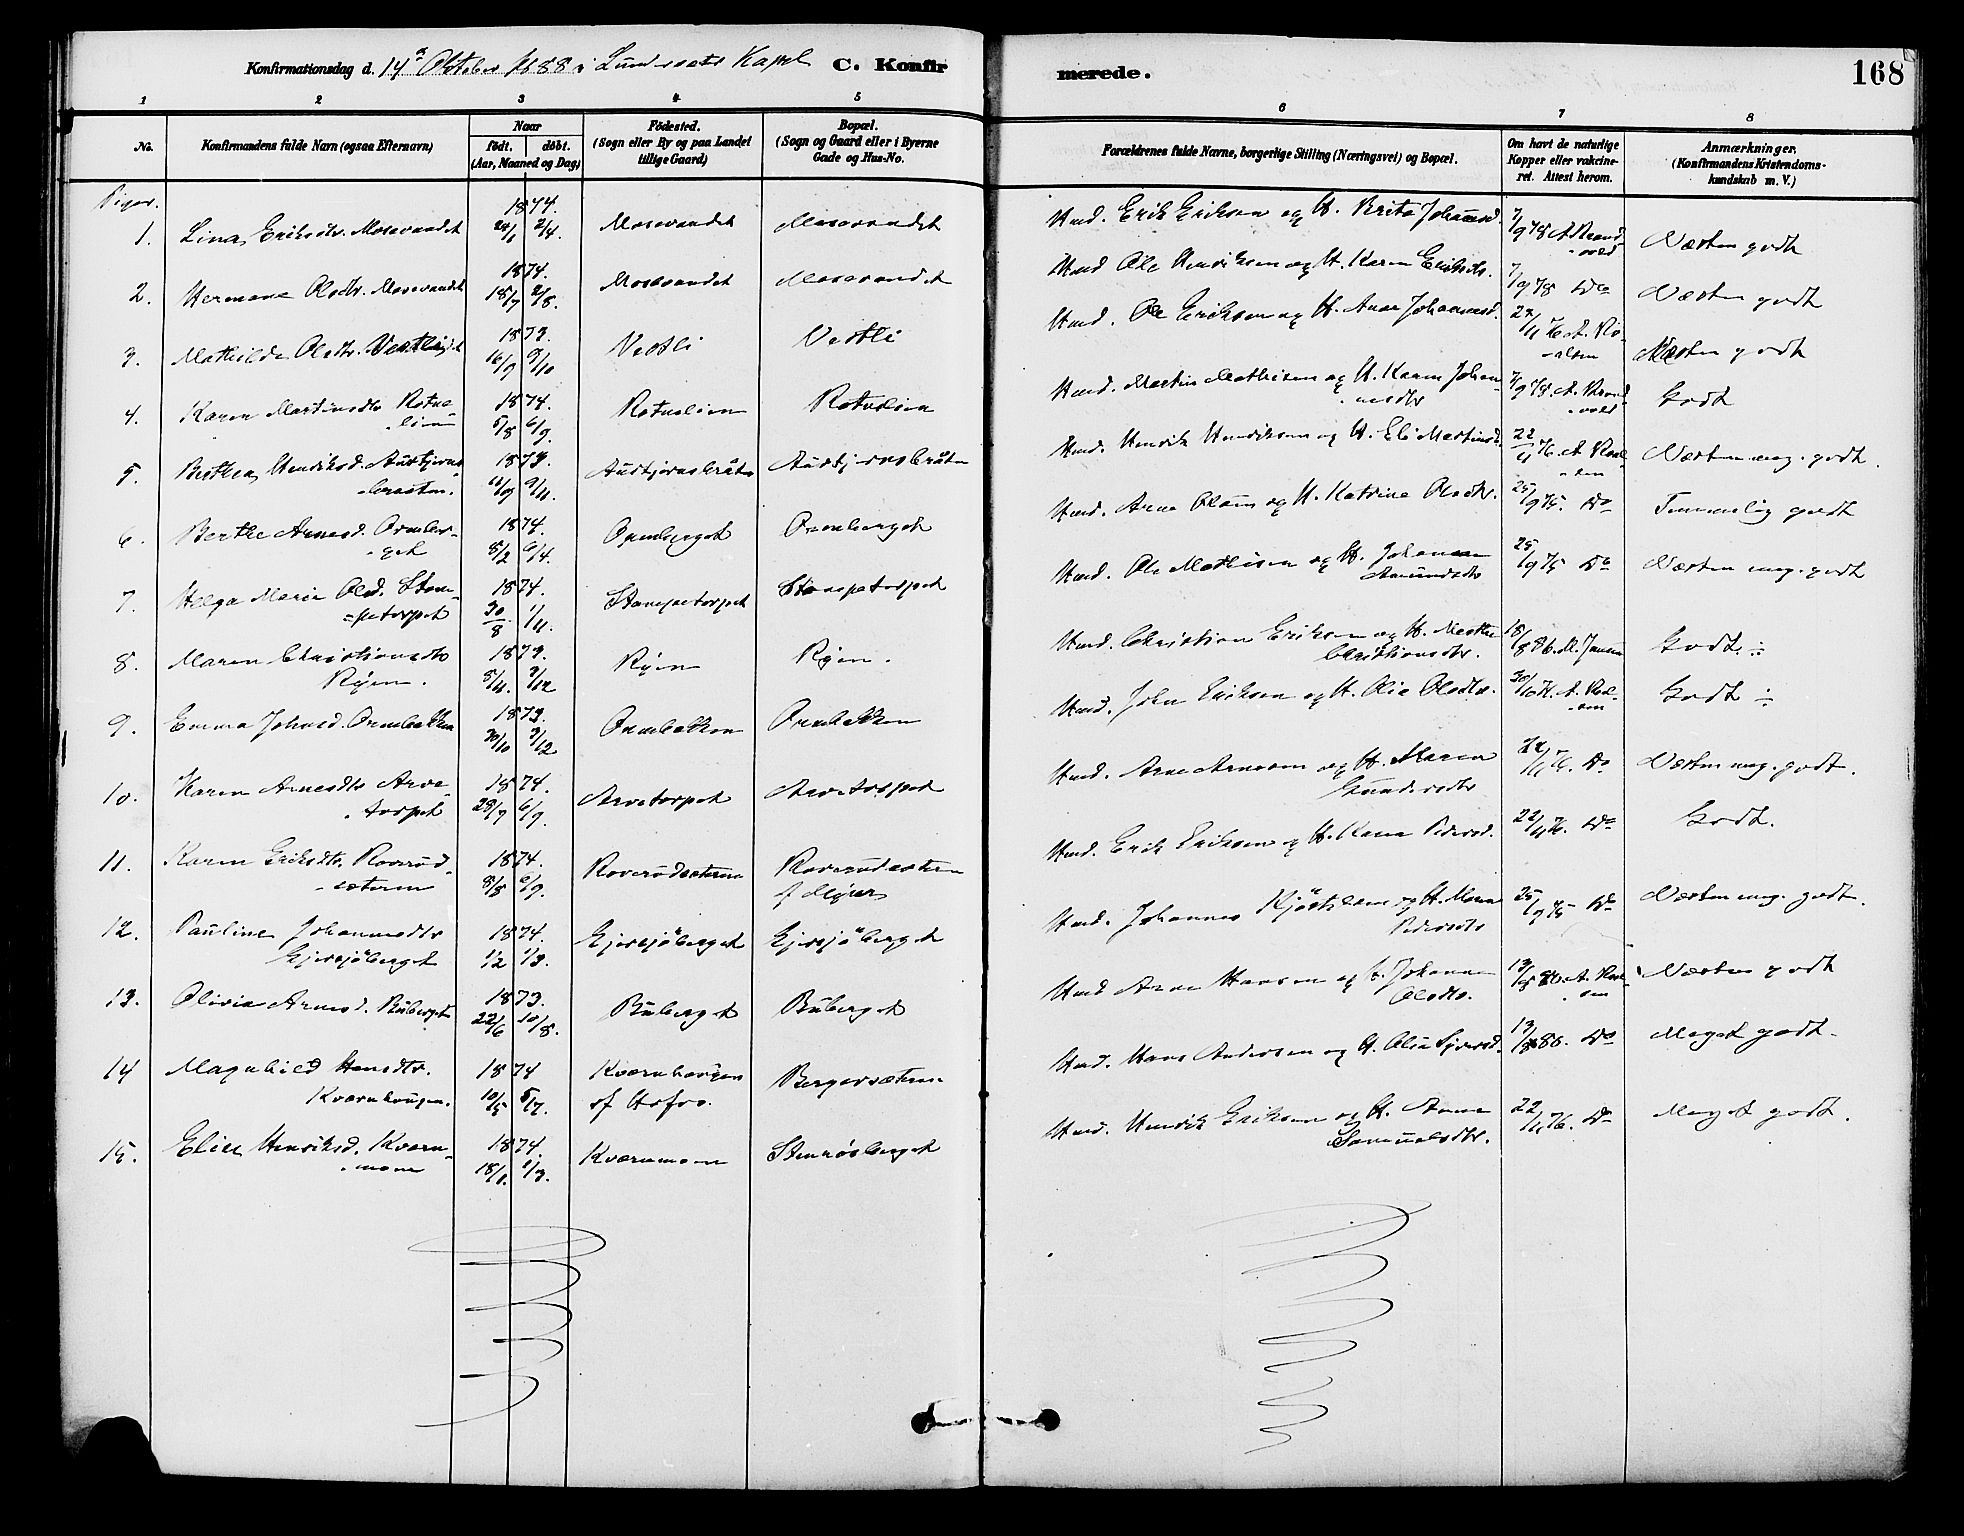 Konfirmationsdag d. 14de Oktober 1888 i Lundersæters Kapel C. Konfirmerede. 168
1 2 3 4 5 6 7 8
No. Konfirmandens fulde Navn (ogsaa Efternavn) Naar født. døbt. (Aar, Maaned og Dag) Födested. (Sogn eller By og paa Landet tillige Gaard) Bopæl. (Sogn og Gaard eller i Byerne Gade og Hus-No. Forældrenes fulde Navne, borgerlige Stilling (Næringsvei) og Bopæl. Om havt de naturlige Kopper eller vakcineret. Attest herom. Anmærkninger. (Konfirmandens Kristendomskundskab m. V.)
Piger.
1. Lina Eriksdtr. Mosevandet 1874. 24/1 2/4. Mosevandet Mosevandet Hmd. Erik Eriksen og H. Brita Johannesd. 7/9 78 A Strandvold Næsten godt
2. Hermana Olsdtr. Mosevandet 1874. 18/7 2/8. Mosevandet Mosevandet Hmd Ole Henriksen og H. Karen Eriksdtr. 7/9 78 Do Næsten godt
3. Mathilde Olsdtr. Vestli 1873. 16/9 9/10 Vestli Vestli Hmd. Ole Eriksen og H. Anne Johannesd. 22/11 76 A. Næsten godt
4. Karen Martinsdtr Rotnelien 1874. 5/8 6/9. Rotnelien Rotnelien Hmd. Martin Mathisen og H. Karen Johannesdtr 7/9 78. A. Strandvold Godt
5. Berthea Henriksd. Austjernsbraaten. 1873. 11/9 9/11. Austjernsbråten Austjernsbråten Hmd. Henrik Henriksen og H. Eli Martinsd. 22/11 76. A Næsten meg. godt.
6. Berthe Arnesd. Ormberget 1874. 8/2 6/4. Ormberget Ormberget Hmd. Arne Olsen og H. Katrine Olsdtr. 25/9 75. Do Temmelig godt
7. Helga Marie Olsd. Stompetorpet 1874. 30/8 1/11. Stompetorpet Stompetorpet Hmd. Ole Mathisen og H. Johanne Amundsdtr 25/9 75 Do Næsten meg. godt
8. Maren Christiansdtr Ryen. 1873. 5/11. 3/12 Ryen Ryen. Hmd. Christian Eriksen og H. Marthe Christiansdtr. 18/8 86. M. Jensen Godt ÷
9. Emma Johnsd. Ormbakken 1873. 30/10 3/12 Ormbakken Ormbakken Hmd. John Eriksen og H. Olia Olsdtr. 30/10 76. A. Godt ÷
10. Karen Arnesdtr Arvetorpet 1874. 28/7 6/9. Arvetorpet Arvetorpet Hmd. Arne Arnesen og H. Maren Gundersdtr 22/11 76. Do Næsten meg. godt.
11. Karen Eriksdtr. Roverudsæteren 1874. 8/8 6/9. Roverudsæteren Roverudsæteren Hmd. Erik Eriksen og H. Karen Pedersd. 22/11 76. Do Godt.
12. Pauline Johannesdtr Gjersjöberget 1874. 1/2 1/3. Gjersjöberget Gjersjöberget Hmd. Johannes og H. Maren Pedersdtr 25/9 75 Do Næsten meg. godt.
13. Olivia Arnesd. Buberget 1873. 22/6 10/8. Buberget Buberget Hmd Arne Hansen og H. Johanne Olsdtr. 13/8 80. A. Næsten godt
14 Magnhild Hansdtr. Kværnhaugen. 1874 10/5 5/7. Kværnhaugen af Hofvo. Bergersæteren Hmd. Hans Andersen og H. Olia Syversd. 13/8 80. Do Meget godt.
15. Elise Henriksd. Kværnmoen 1874. 18/1. 1/3. Kværnmoen Stenrösberget Hmd. Henrik Eriksen og H. Anne Samuelsdtr. 22/11 76. Do Meget godt.